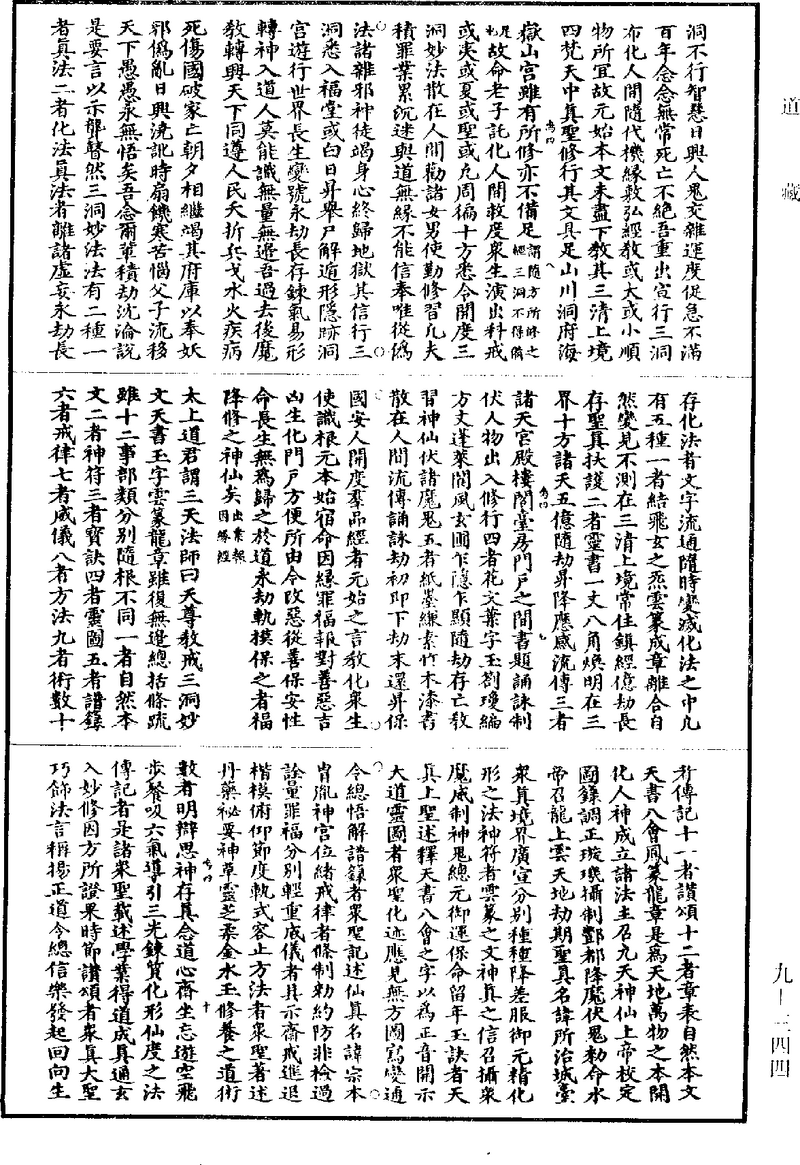 道藏
洞不行智慧日興人鬼交雜運度促急不滿
百年念念無常死亡不絕吾重出宣行三洞
布化人間隨代機緣敷弘經教或大或小順
物所宜故元始本文未盡下教其三清上境
四梵天中真聖修行其文具足山川洞府海
嶽山宮雖有所修亦不備足謂隨方所修之經三洞不得備
足也故命老子託化人間救度眾生演出科戒
或夷或夏或聖或凡周徧十方悉令開度三
洞妙法散在人間勸諸女男使勤修習凡夫
積罪業累沉迷與道無緣不能信奉唯從偽
法諸雜邪神徒竭身心終歸地獄其信行三
洞悉入福堂或白日昇舉尸解遁形隱跡洞
宮遊行世界長生變號永劫長存鍊氣易形
轉神入道人莫能識無量無邊吾過去後魔
教轉興天下同遵人民夭折兵戈水火疾病
死傷國破家亡朝夕相繼竭其府庫以奉妖
邪偽亂日興澆訛時扇饑寒苦惱父子流移
天下愚愚永無悟矣吾念爾輩積劫沈淪說
是要言以示聾瞽然三洞妙法法有二種一
者真法二者化法真法者離諸虛妄永劫長
存化法者文字流通隨時變滅化法之中凡
有五種一者結飛玄之炁雲篆成章離合自
然變見不測在三清上境常住鎮經億劫長
存聖真扶護二者靈書一丈八角煥明在三
界十方諸天五億隨劫昇降應感流傳三者
諸天宮殿樓閣臺房門戶之間書題誦詠制
伏人物出入修行四者花文葉字玉劄瓊編
方丈蓬萊閬風玄圃乍隱乍顯隨劫存亡教
習神仙伏諸魔鬼五者紙墨縑素竹木漆書
散在人間流傳誦詠劫初即下劫末還昇保
國安人開度羣品經者元始之言教化眾生
使識根元本始宿命因緣罪福報對善惡吉
凶生化門戶方便所由令改惡從善保安性
命長生無為歸之於道永劫軌模保之者福
降修之神仙矣出業報因緣經
太上道君謂三天法師曰天尊教戒三洞妙
文天書玉字雲篆龍章雖復無邊總括條疏
雖十二事部類分別隨根不同一者自然本
文二者神符三者寶訣四者靈圖五者譜錄
六者戒律七者威儀八者方法九者術數十
者傳記十一者讚頌十二者章表自然本文
天書八會鳳篆龍章是為天地萬物之本開
化人神成立諸法主召九天神仙上帝校定
圖籙調正璇璣攝制酆都降魔伏鬼勑命水
帝召龍上雲天地劫期聖真名諱所治城臺
眾真境界廣宣分別種種降差服御元精化
形之法神符者雲篆之文神真之信召攝眾
魔威制神鬼總元御運保命留年玉訣者天
真上聖述釋天書八會之字以為正音開示
大道靈圖者眾聖化迹應見無方圖寫變通
令總悟解譜錄者眾聖記述仙真名諱宗本
胄胤神宮位緒戒律者條制勑約防非檢過
詮量罪福分別輕重威儀者具示齋戒進退
楷模俯仰節度軌式容止方法者眾聖著述
丹藥祕要神草靈芝柔金水玉修養之道術
數者明辯思神存真念道心齋坐忘遊空飛
步餐吸六氣導引三光鍊質化形仙度之法
傳記者是諸眾聖載述學業得道成真通玄
入妙修因方所證果時節讚頌者眾真大聖
巧飾法言稱揚正道令總信樂發起回向生
九—三四四